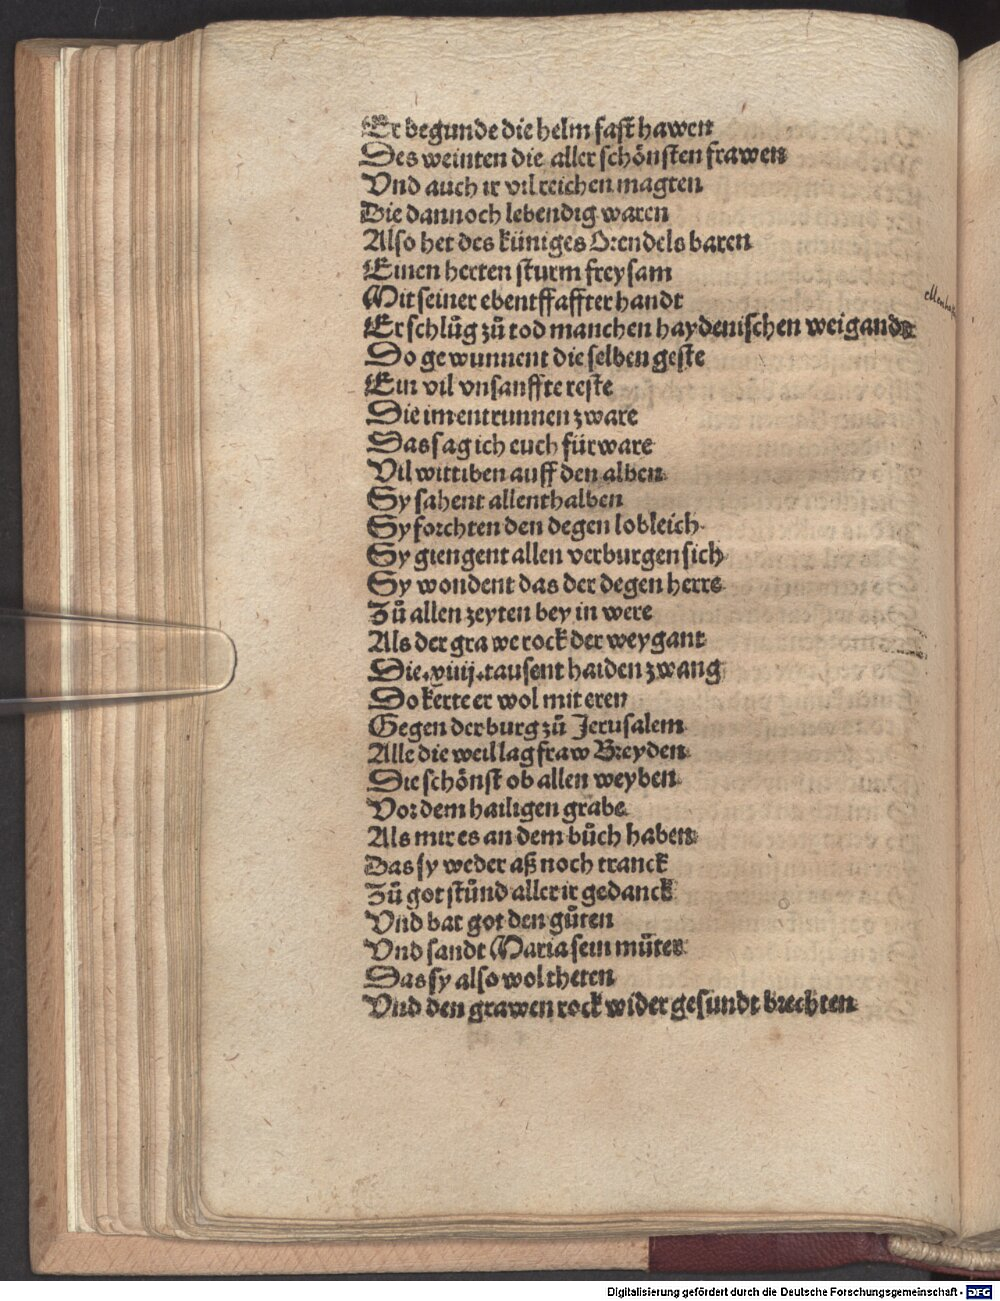 Er begunde die helm fast hawen
Des weinten die aller schönsten frawen
Vnd auch ir vil reichen magten
Die dannoch lebendig waren
Also het des küniges Orendels baren
Einen herten sturm freysam
Mit seiner ebentffaffter handt
Er schlůg zů tod manchen haydenischen weigande
Do gewunnent die selben geste
Ein vil vnsanffte reste
Die im entrunnen zware
Das sag ich euch für ware
Vil wittiben auff den alben
Sy sahent allenthalben
Sy forchten den degen lobleich
Sy giengent allen verburgen sich
Sy wondent das der degen herre
Zů allen zeyten bey in were
Als der grawe rock der weygant
Die .xviij. tausent haiden zwang
Do kerte er wol mit eren
Gegen der burg zů Jerusalem
Alle die weil lag fraw Breyden
Die schönst ob allen weyben
Vor dem hailigen grabe
Als mir es an dem bůch haben
Das sy weder aß noch tranck
Zů got stůnd aller ir gedanck
Vnd bat got den gůten
Vnd sandt Maria sein můter
Das sy also wol theten
Vnd den grawen rock wider gesundt brechten
Digitalisierung gefördert durch die Deutsche Forschungsgemeinschaft - DFG